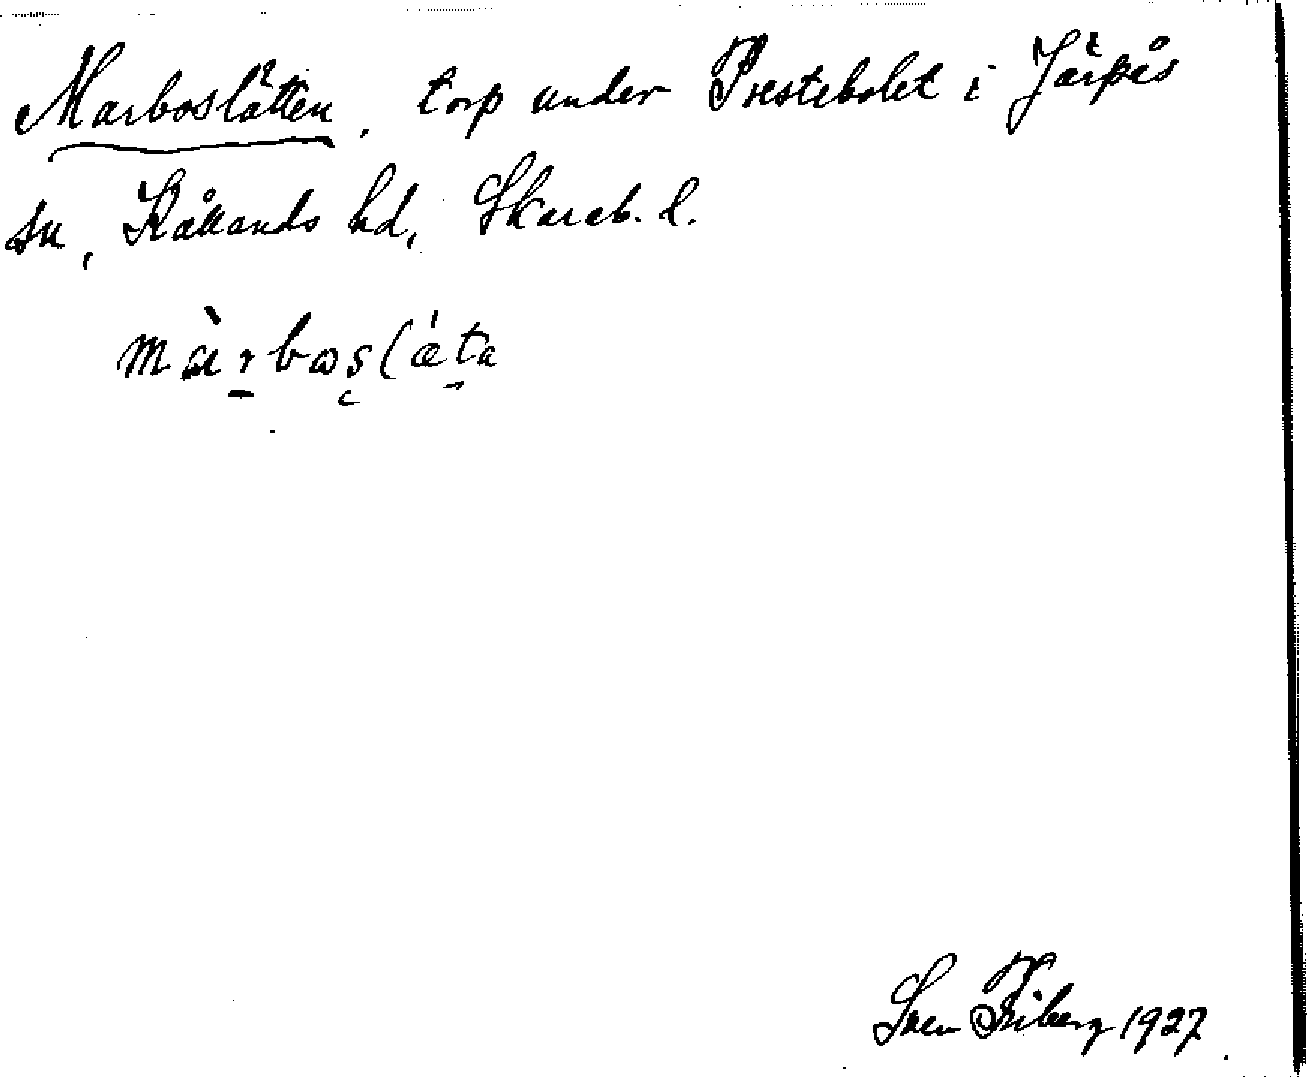 Marboslätten, torp under Prestebolet i Järpås
sn, Kållands hd, Skarab. l.
màrbosláta
Sven Friberg 1927.